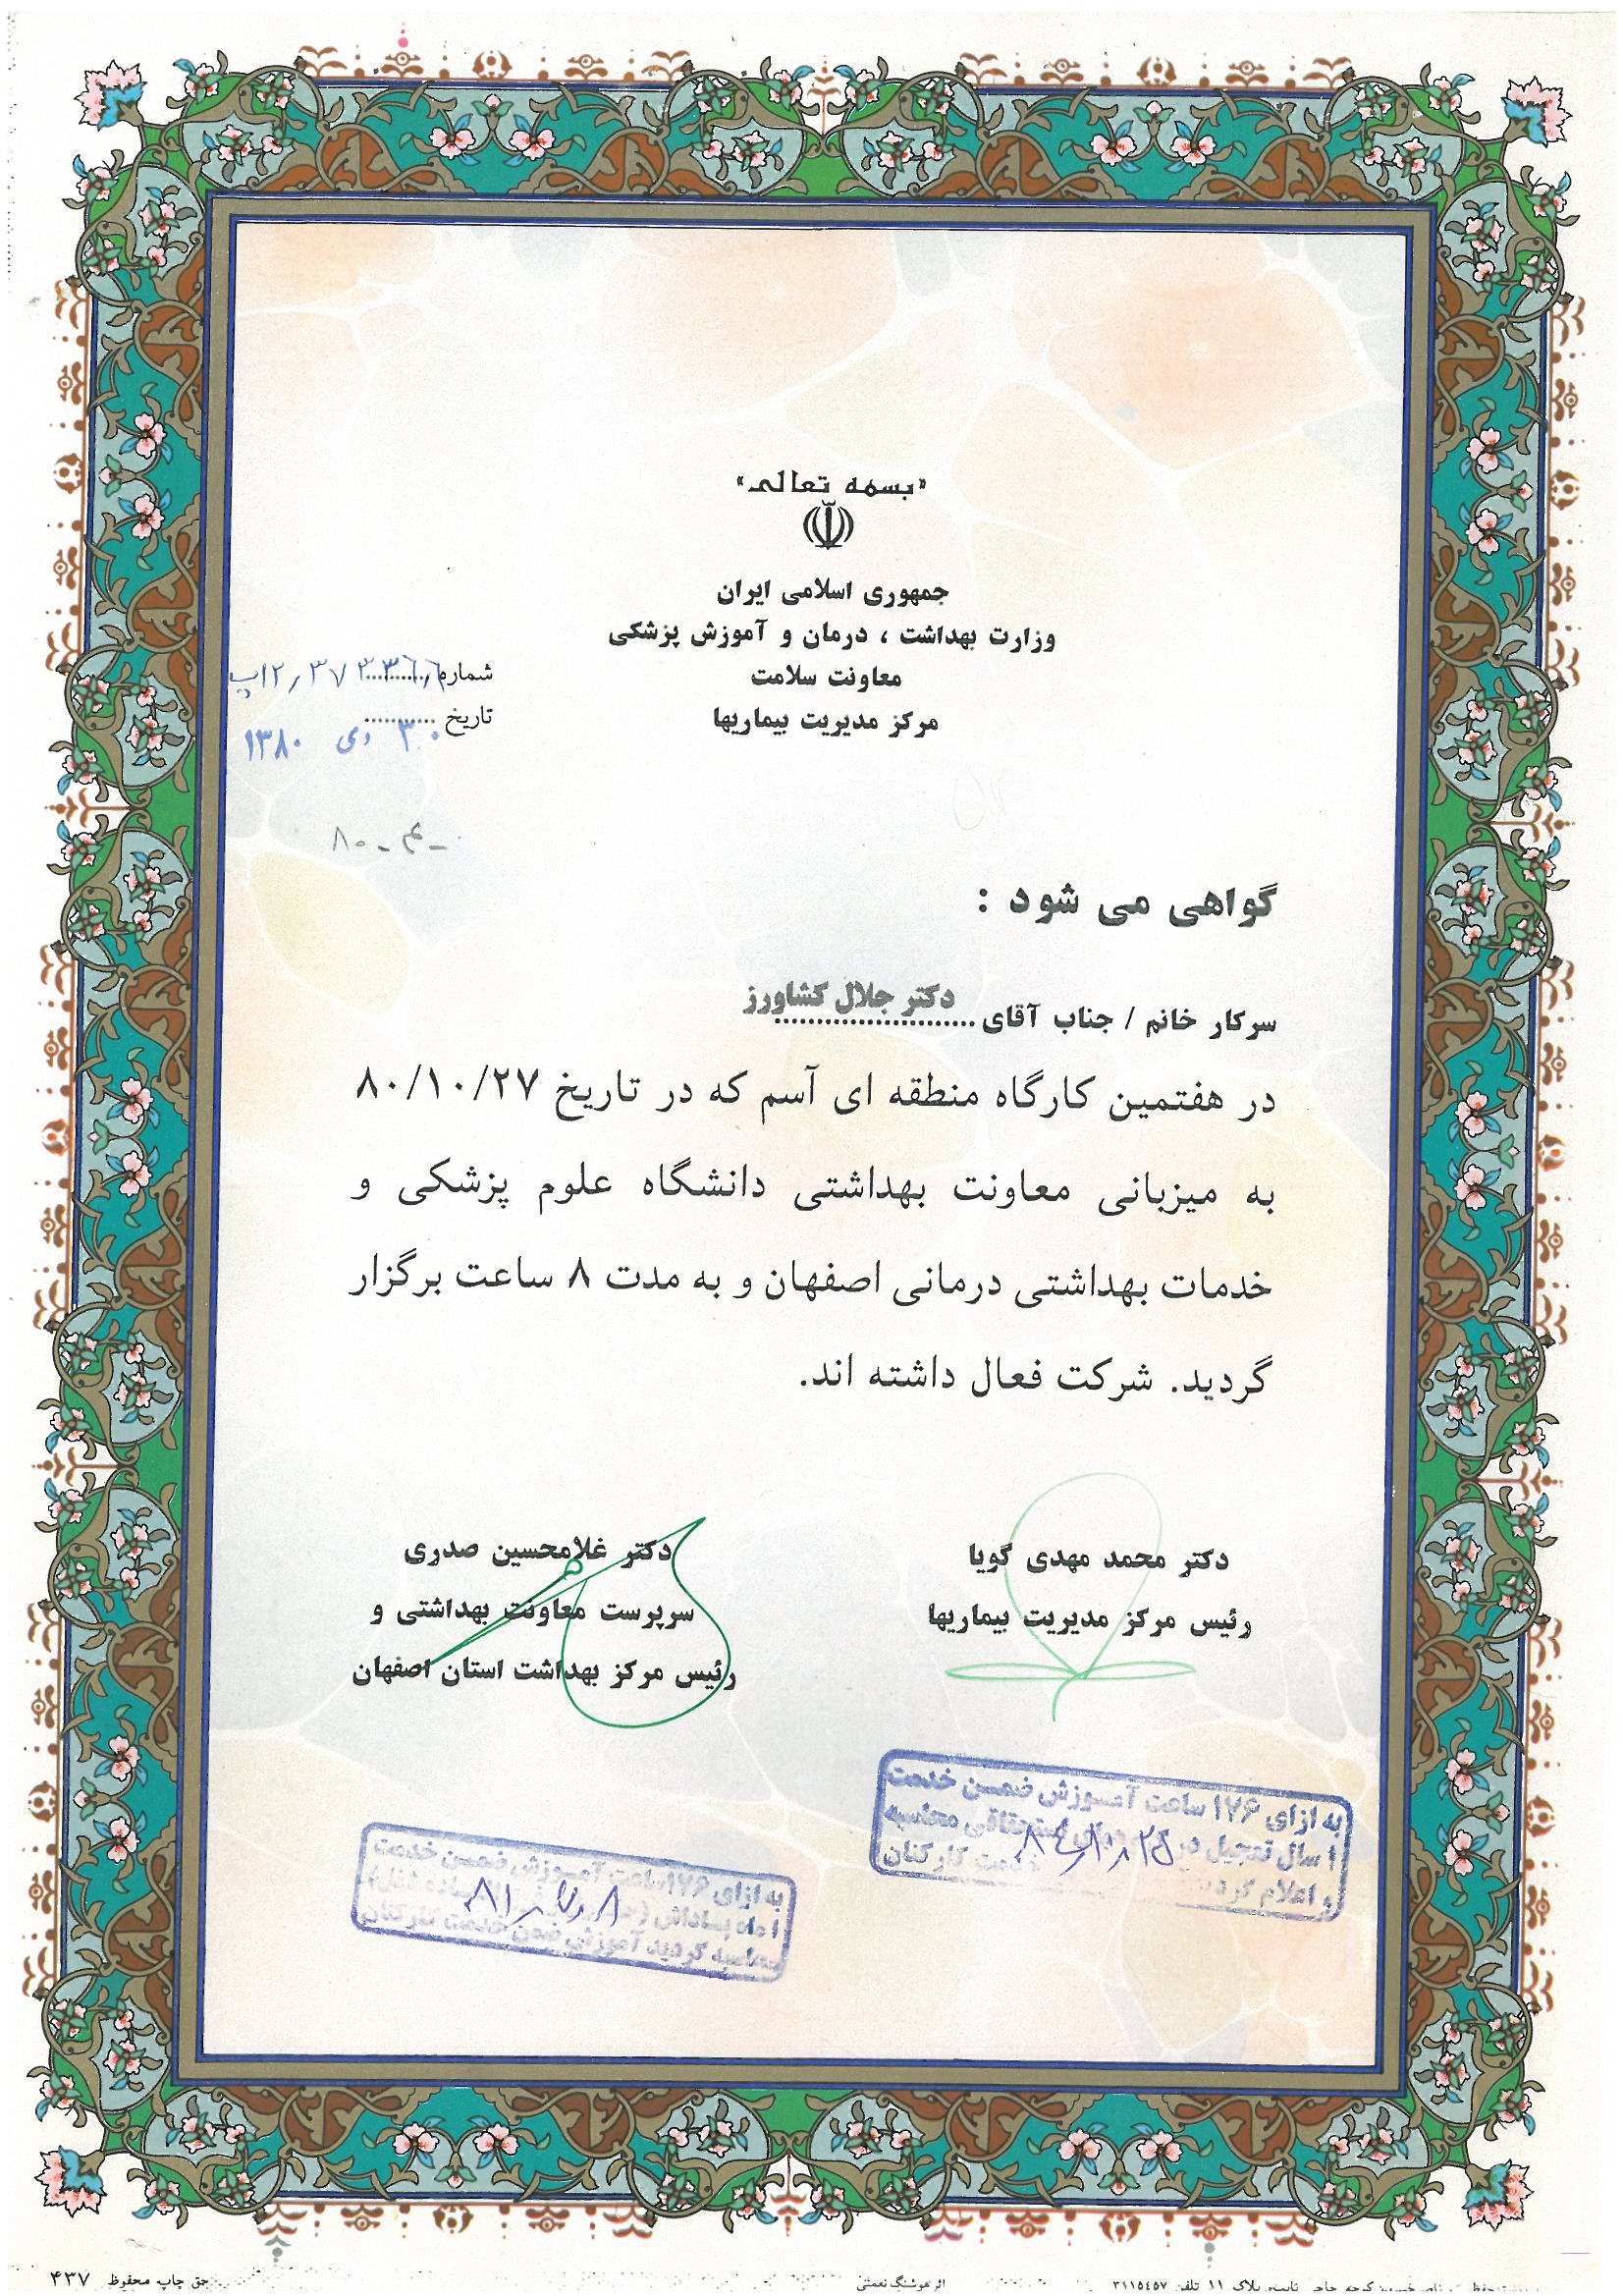 «بسمه تعالی»
جمهوری اسلامی ایران
وزارت بهداشت ، درمان و آموزش پزشکی
معاونت سلامت
مرکز مدیریت بیماریها
شماره
تاریخ ۳۰ دی ۱۳۸۰
گواهی می شود :
سرکار خانم / جناب آقای دکتر جلال کشاورز
در هفتمین کارگاه منطقه ای آسم که در تاریخ ۸۰/۱۰/۲۷
به میزبانی معاونت بهداشتی دانشگاه علوم پزشکی و
خدمات بهداشتی درمانی اصفهان و به مدت ۸ ساعت برگزار
گردید. شرکت فعال داشته اند.
دکتر محمد مهدی گویا
رئیس مرکز مدیریت بیماریها
دکتر غلامحسین صدری
سرپرست معاونت بهداشتی و
رئیس مرکز بهداشت استان اصفهان
به ازای ۱۷۶ ساعت آموزش ضمن خدمت
۱ سال تعجیل در محاسبه
و اعلام گردید خدمت کارکنان
به ازای ۱۷۶ ساعت آموزش ضمن خدمت
۱ ماه پاداش
محاسبه گردید آموزش ضمن خدمت کارکنان
حق چاپ محفوظ ۴۳۷
اثر هوشنگ نعمتی
پلاک ۱۱ تلفن ۳۱۱۵۴۵۷